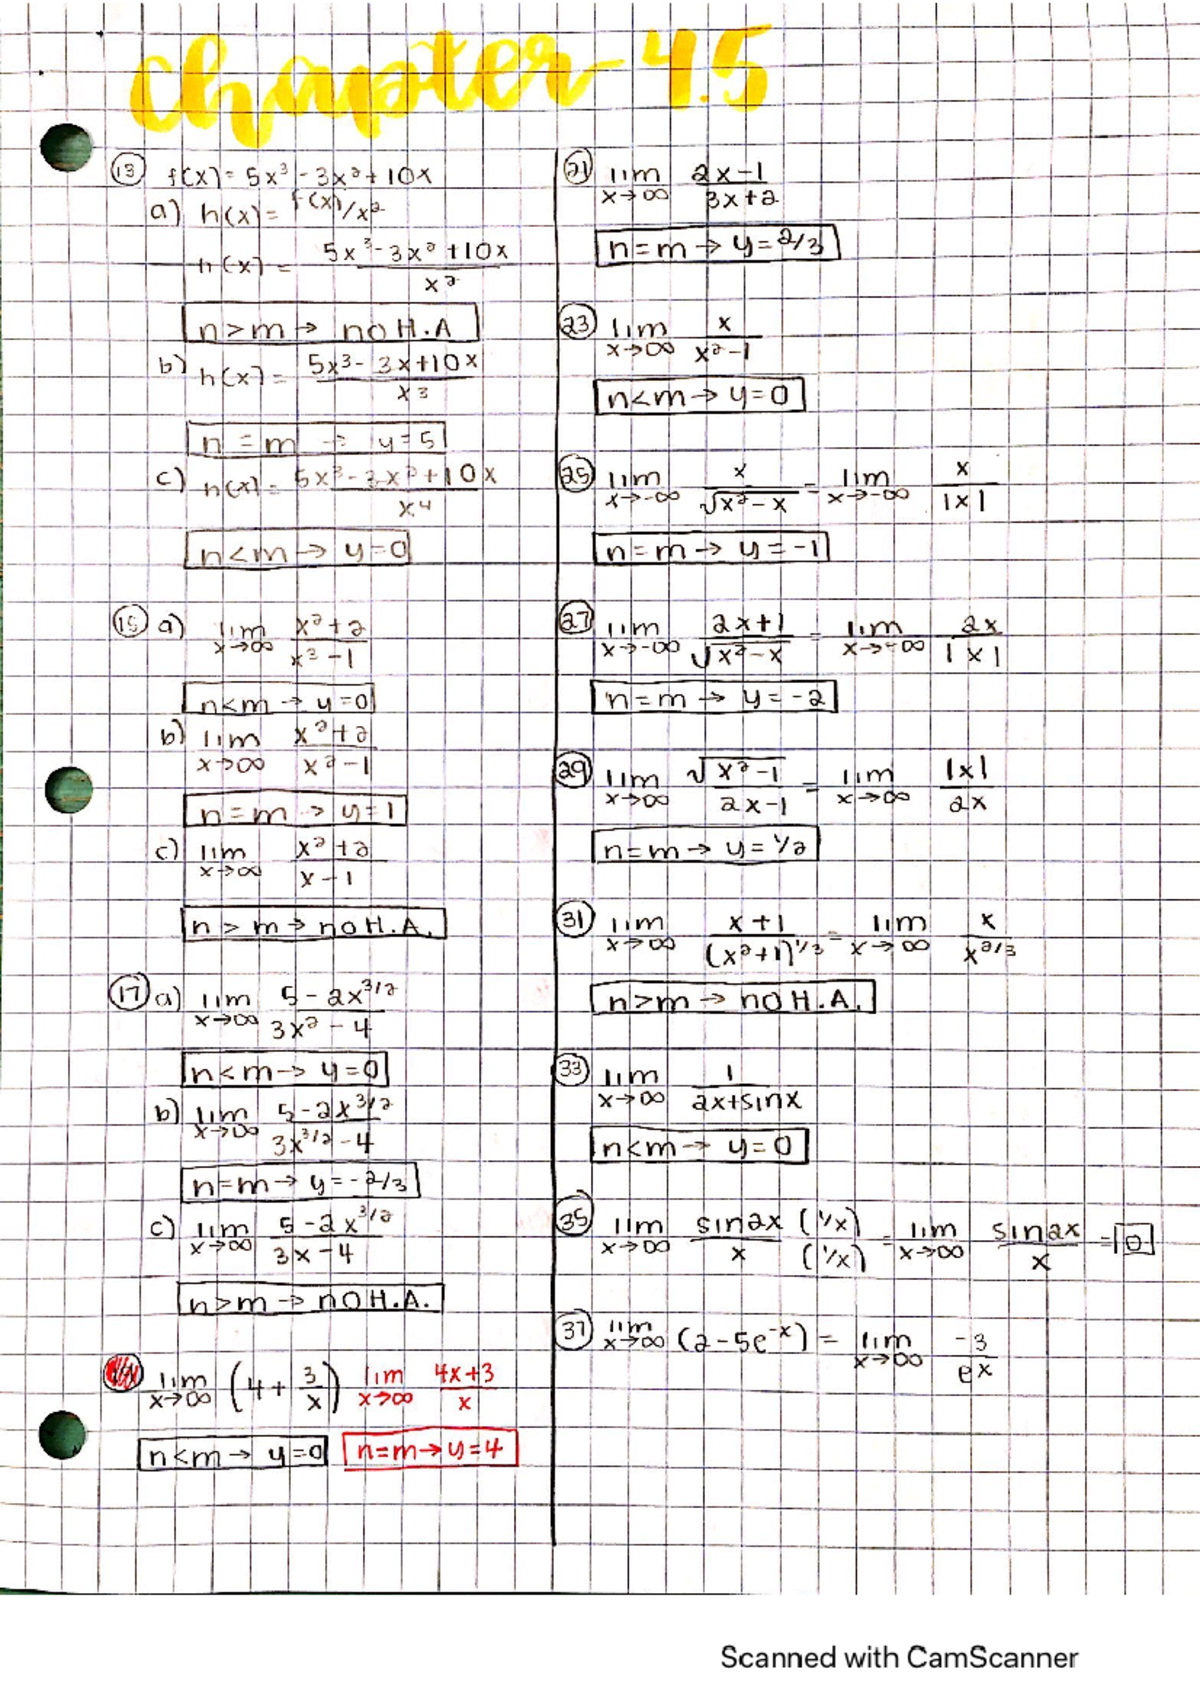 chapter - 4.5
13 f(x) = 5x³ - 3x² + 10x
a) h(x) = f(x)/x²
h(x) = 5x³ - 3x² + 10x / x²
n > m → no H.A
b) h(x) = 5x³ - 3x + 10x / x3
n = m → y = 5
c) h(x) = 5x³ - 3x² + 10x / x4
n < m → y = 0
15 a) lim x→∞ x² + 2 / x³ - 1
n < m → y = 0
b) lim x→∞ x² + 2 / x² - 1
n = m → y = 1
c) lim x→∞ x² + 2 / x - 1
n > m → no H.A.
17 a) lim x→∞ 5 - 2x^3/2 / 3x² - 4
n < m → y = 0
b) lim x→∞ 5 - 2x^3/2 / 3x^3/2 - 4
n = m → y = -2/3
c) lim x→∞ 5 - 2x^3/2 / 3x - 4
n > m → no H.A.
lim x→∞ (4 + 3/x) lim x→∞ 4x + 3 / x
n < m → y = 0 n = m → y = 4
21 lim x→∞ 2x - 1 / 3x + 2
n = m → y = 2/3
23 lim x→∞ x / x² - 1
n < m → y = 0
25 lim x→-∞ x / √x² - x = lim x→-∞ x / |x|
n = m → y = -1
27 lim x→-∞ 2x + 1 / √x² - x = lim x→-∞ 2x / |x|
n = m → y = -2
29 lim x→∞ √x² - 1 / 2x - 1 = lim x→∞ |x| / 2x
n = m → y = 1/2
31 lim x→∞ x + 1 / (x² + 1)^1/3 = lim x→∞ x / x^2/3
n > m → no H.A.
33 lim x→∞ 1 / 2x + sinx
n < m → y = 0
35 lim x→∞ sin2x / x (1/x) / (1/x) = lim x→∞ sin2x / x = 0
37 lim x→∞ (2 - 5e^-x) = lim x→∞ -3 / e^x
Scanned with CamScanner